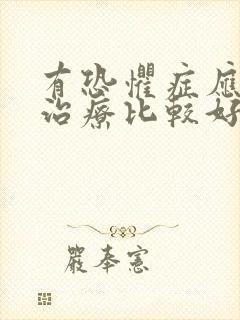 有恐懼症應
治療比較好
嚴奉憲